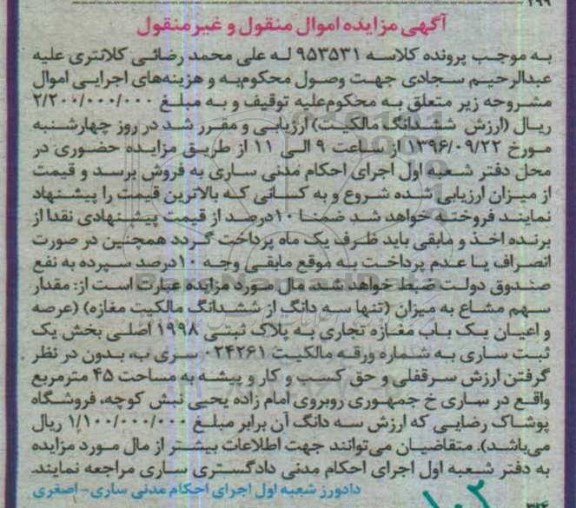 ۱۹۹
آگهی مزایده اموال منقول و غیر منقول
به موجب پرونده کلاسه ۹۵۳۵۳۱ له علی محمد رضائی کلانتری علیه
عبدالرحیم سجادی جهت وصول محکوم‌به و هزینه‌های اجرایی اموال
مشروحه زیر متعلق به محکوم‌علیه توقیف و به مبلغ ۲/۲۰۰/۰۰۰/۰۰۰
ریال (ارزش ششدانگ مالکیت) ارزیابی و مقرر شد در روز چهارشنبه
مورخ ۱۳۹۶/۰۹/۲۲ از ساعت ۹ الی ۱۱ از طریق مزایده حضوری در
محل دفتر شعبه اول اجرای احکام مدنی ساری به فروش برسد و قیمت
از میزان ارزیابی شده شروع و به کسانی که بالاترین قیمت را پیشنهاد
نمایند فروخته خواهد شد ضمنا ۱۰درصد از قیمت پیشنهادی نقدا از
برنده اخذ و مابقی باید ظرف یک ماه پرداخت گردد همچنین در صورت
انصراف یا عدم پرداخت به موقع مابقی وجه ۱۰درصد سپرده به نفع
صندوق دولت ضبط خواهد شد. مال مورد مزایده عبارت است از: مقدار
سهم مشاع به میزان (تنها سه دانگ از ششدانگ مالکیت مغازه) (عرصه
و اعیان یک باب مغازه تجاری به پلاک ثبتی ۱۹۹۸ اصلی بخش یک
ثبت ساری به شماره ورقه مالکیت ۰۲۴۲۶۱ سری ب، بدون در نظر
گرفتن ارزش سرقفلی و حق کسب و کار و پیشه به مساحت ۴۵ مترمربع
واقع در ساری خ جمهوری روبروی امام زاده یحیی نبش کوچه، فروشگاه
پوشاک رضایی که ارزش سه دانگ آن برابر مبلغ ۱/۱۰۰/۰۰۰/۰۰۰ ریال
می‌باشد). متقاضیان می‌توانند جهت اطلاعات بیشتر از مال مورد مزایده
به دفتر شعبه اول اجرای احکام مدنی دادگستری ساری مراجعه نمایند.
دادورز شعبه اول اجرای احکام مدنی ساری- اصغری
۱۰۲